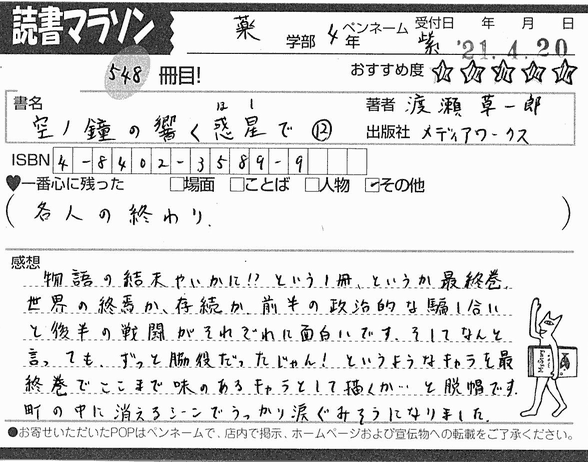 読書マラソン 薬 学部 4年 ペンネーム 紫 受付日 年 月 日 '21.4.20
548 冊目! おすすめ度 ☆☆☆☆☆
書名 空ノ鐘の響く惑星で ⑫ 著者 渡瀬草一郎
ほし
出版社 メディアワークス
ISBN 4-8402-3589-9
♥一番心に残った □場面 □ことば □人物 ☑その他
(各人の終わり.)
感想
物語の結末やいかに!?という1冊、というか最終巻。
世界の終焉か、存続か。前半の政治的な騙し合い
と後半の戦闘がそれぞれに面白いです。そしてなんと
言っても、ずっと脇役だったじゃん!というようなキャラを最
終巻でここまで味のあるキャラとして描くか…と脱帽です。
町の中に消えるシーンでうっかり涙ぐみそうになりました。
●お寄せいただいたPOPはペンネームで、店内で掲示、ホームページおよび宣伝物への転載をご了承ください。